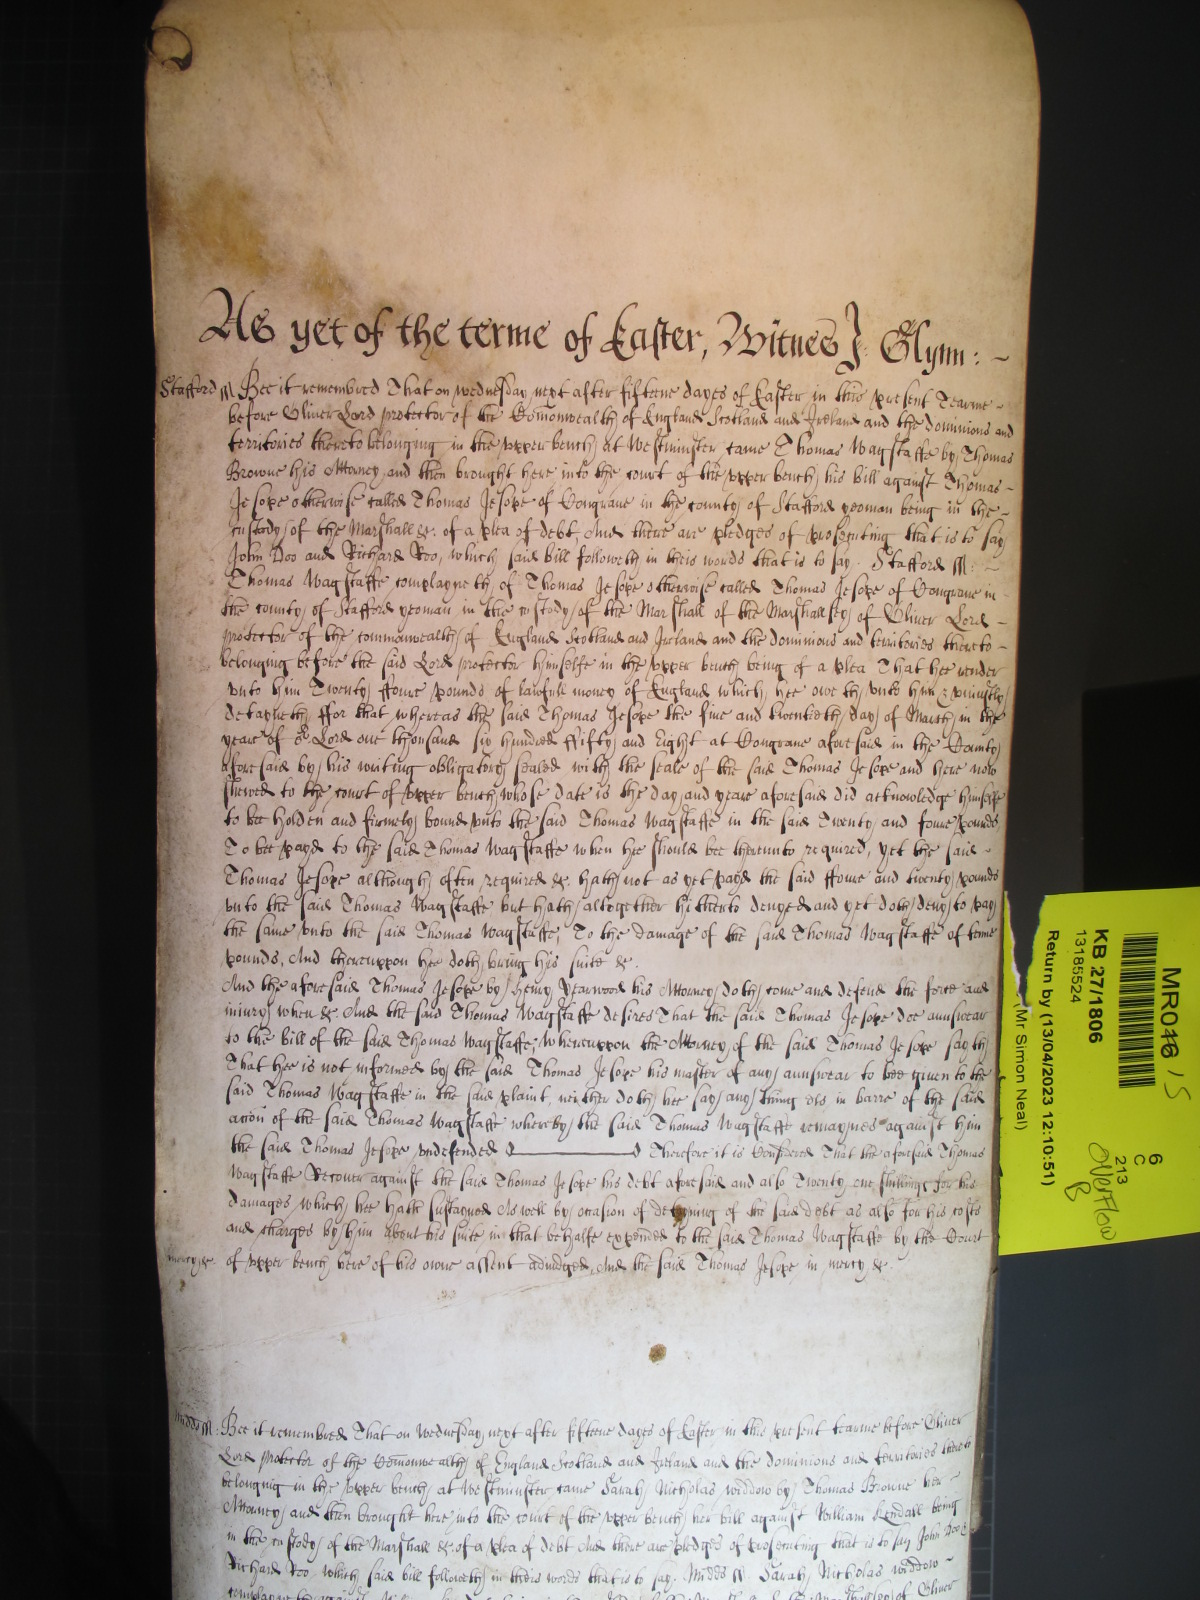 As yet of the terme of Easter, Witnes J: Glynn: ~
Stafford ss Bee it remembred That on wednesday next after fifteene dayes of Easter in this present Tearme
before Oliver Lord protector of the Comonwealth of England Scotland and Ireland and the dominions and
territories thereto belonging in the upper bench at Westminster came Thomas Wagstaffe by Thomas
Browne his Attorney and then brought here into the court of the upper bench his bill against Thomas
Jesope otherwise called Thomas Jesope of Congrave in the county of Stafford yeoman being in the
custody of the Marshall &c. of a plea of debt And there are pledges of prosequting that is to say
John Doo and Richard Roo, which said bill followeth in theis words that is to say. Stafford ss:
Thomas Wagstaffe complayneth of Thomas Jesope otherwise called Thomas Jesope of Congrave in
the county of Stafford yeoman in the custody of the Marshall of the Marshallsey of Oliver Lord
protector of the commonwealth of England Scotland and Ireland and the dominions and territories thereto
belonging before the said Lord protector himselfe in the upper bench being of a plea That hee render
unto him Twenty ffoure pounds of lawfull money of England which hee oweth unto him & uniustly
detayneth, ffor that whereas the said Thomas Jesope the five and twentieth day of March in the
yeare of or Lord one thousand six hundred ffifty and Eight at Congrave aforesaid in the County
aforesaid by his writing obligatory sealed with the seale of the said Thomas Jesope and here now
shewed to the court of upper bench whose date is the day and yeare aforesaid did acknowledge himselfe
to bee holden and firmely bound unto the said Thomas Wagstaffe in the said Twenty and foure pounds,
To bee payd to the said Thomas Wagstaffe when hee should bee thereunto required, yet the said
Thomas Jesope although often required &c. hath not as yet payd the said ffoure and twenty pounds
unto the said Thomas Wagstaffe but hath altogether hitherto denyed and yet doth deny to pay
the same unto the said Thomas Wagstaffe, To the damage of the said Thomas Wagstaffe of tenne
pounds, And thereuppon hee doth bring his suite &c.
And the aforesaid Thomas Jesope by Henry Yearwood his Attorney doth come and defend the force and
iniury when &c. And the said Thomas Wagstaffe desires That the said Thomas Jesope doe aunswear
to the bill of the said Thomas Wagstaffe; Whereuppon the Attorney of the said Thomas Jesope sayth
That hee is not informed by the said Thomas Jesope his master of any aunswear to bee given to the
said Thomas Wagstaffe in the said plaint, neither doth hee say any thing els in barre of the said
accion of the said Thomas Wagstaffe whereby the said Thomas Wagstaffe remaynes against him
the said Thomas Jesope undefended Therefore it is Considered That the aforesaid Thomas
Wagstaffe Recover against the said Thomas Jesope his debt aforesaid and also Twenty one shillings for his
damages which hee hath sustayned As well by occasion of detayning of the said debt as also for his costs
and charges by him about his suite in that behalfe expended to the said Thomas Wagstaffe by the Court
mercy &c. of upper bench here of his owne assent adiudged, And the said Thomas Jesope in mercy &c.
Midds ss: Bee it remembred That on Wednesday next after fifteene dayes of Easter in this present tearme before Oliver
Lord protector of the Comonwealth of England Scotland and Ireland and the dominions and territories thereto
belonging in the upper bench at Westminster came Sarah Nicholas widdow by Thomas Browne her
Attorney and then brought here into the court of the upper bench her bill against William Kendall being
in the custody of the Marshall &c. of a plea of debt And there are pledges of prosecuting that is to say John Doo &
Richard Roo which said bill followeth in theis words that is to say. Midds ss. Sarah Nicholas widdow
of Oliver
MR046 15
KB 27/1806
13185524
Mr Simon Neal)
Return by (13/04/2023 12:10:51)
6
C
213
OVERFLOW
B